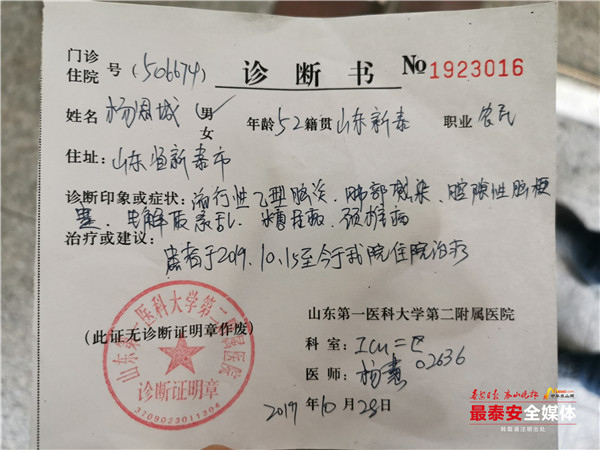 门诊
住院 号（506674） 诊断书 № 1923016
姓名 杨恩城 男 女 年龄 52 籍贯 山东新泰 职业 农民
住址：山东省新泰市
诊断印象或症状：流行性乙型脑炎、肺部感染、腔隙性脑梗
塞、电解质紊乱、糖尿病、颈椎病
治疗或建议：
患者于2019.10.15至今于我院住院治疗
山东第一医科大学第二附属医院
（此证无诊断证明章作废）
科室：ICU二区
医师：杨 02636
2019年10月28日
山东第一医科大学第二附属医院
诊断证明章
3709023011204
泰安日报 泰山晚报
最泰安全媒体
转载请注明出处